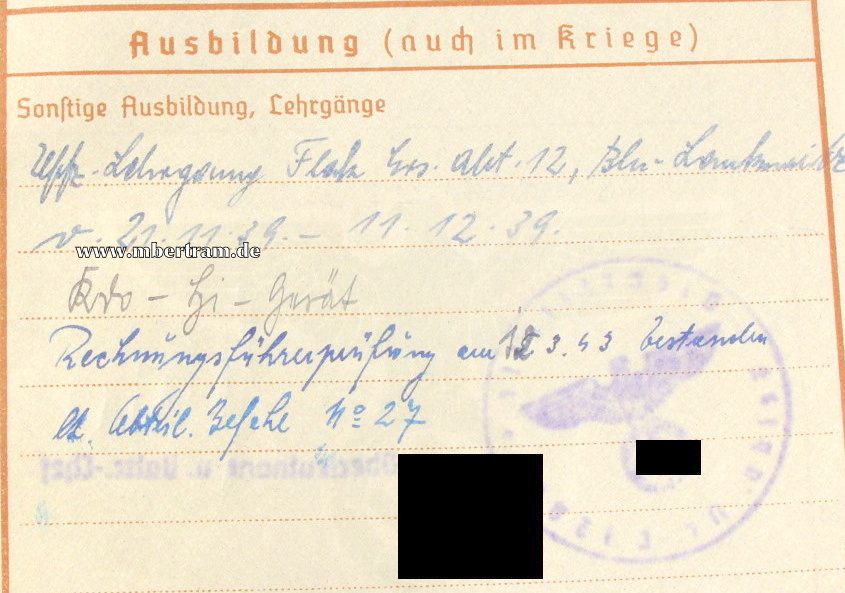 Ausbildung (auch im Kriege)
Sonstige Ausbildung, Lehrgänge
Uffz.-Lehrgang Flak Ers. Abt. 12, Bln-Lankwitz
v. 21.11.39. – 11.12.39.
www.mbertram.de
Kdo – Hi – Gerät
Rechnungsführerprüfung am 3.43 bestanden
lt. Abteil. Befehl No 27